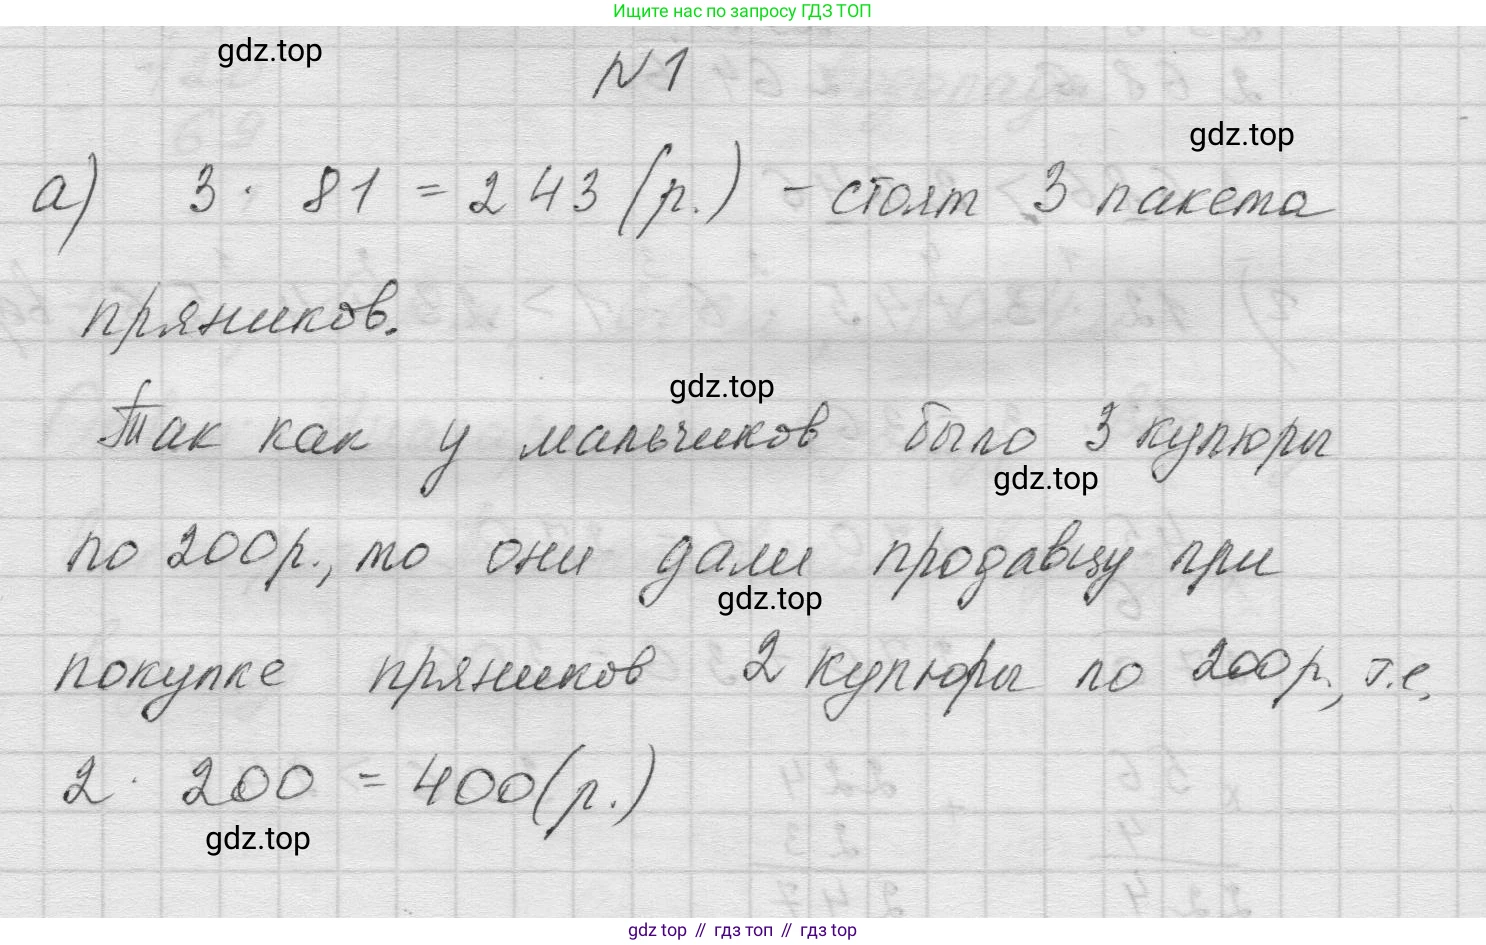 Ищите нас по запросу ГДЗ ТОП
gdz.top
N 1
gdz.top
а) 3 · 81 = 243 (р.) - стоят 3 пакета
пряников.
gdz.top
Так как у мальчиков было 3 купюры
gdz.top
по 200р., то они дали продавцу при
gdz.top
покупке пряников 2 купюры по 200р., т.е.
2 · 200 = 400(р.)
gdz.top
gdz top // гдз топ // гдз top